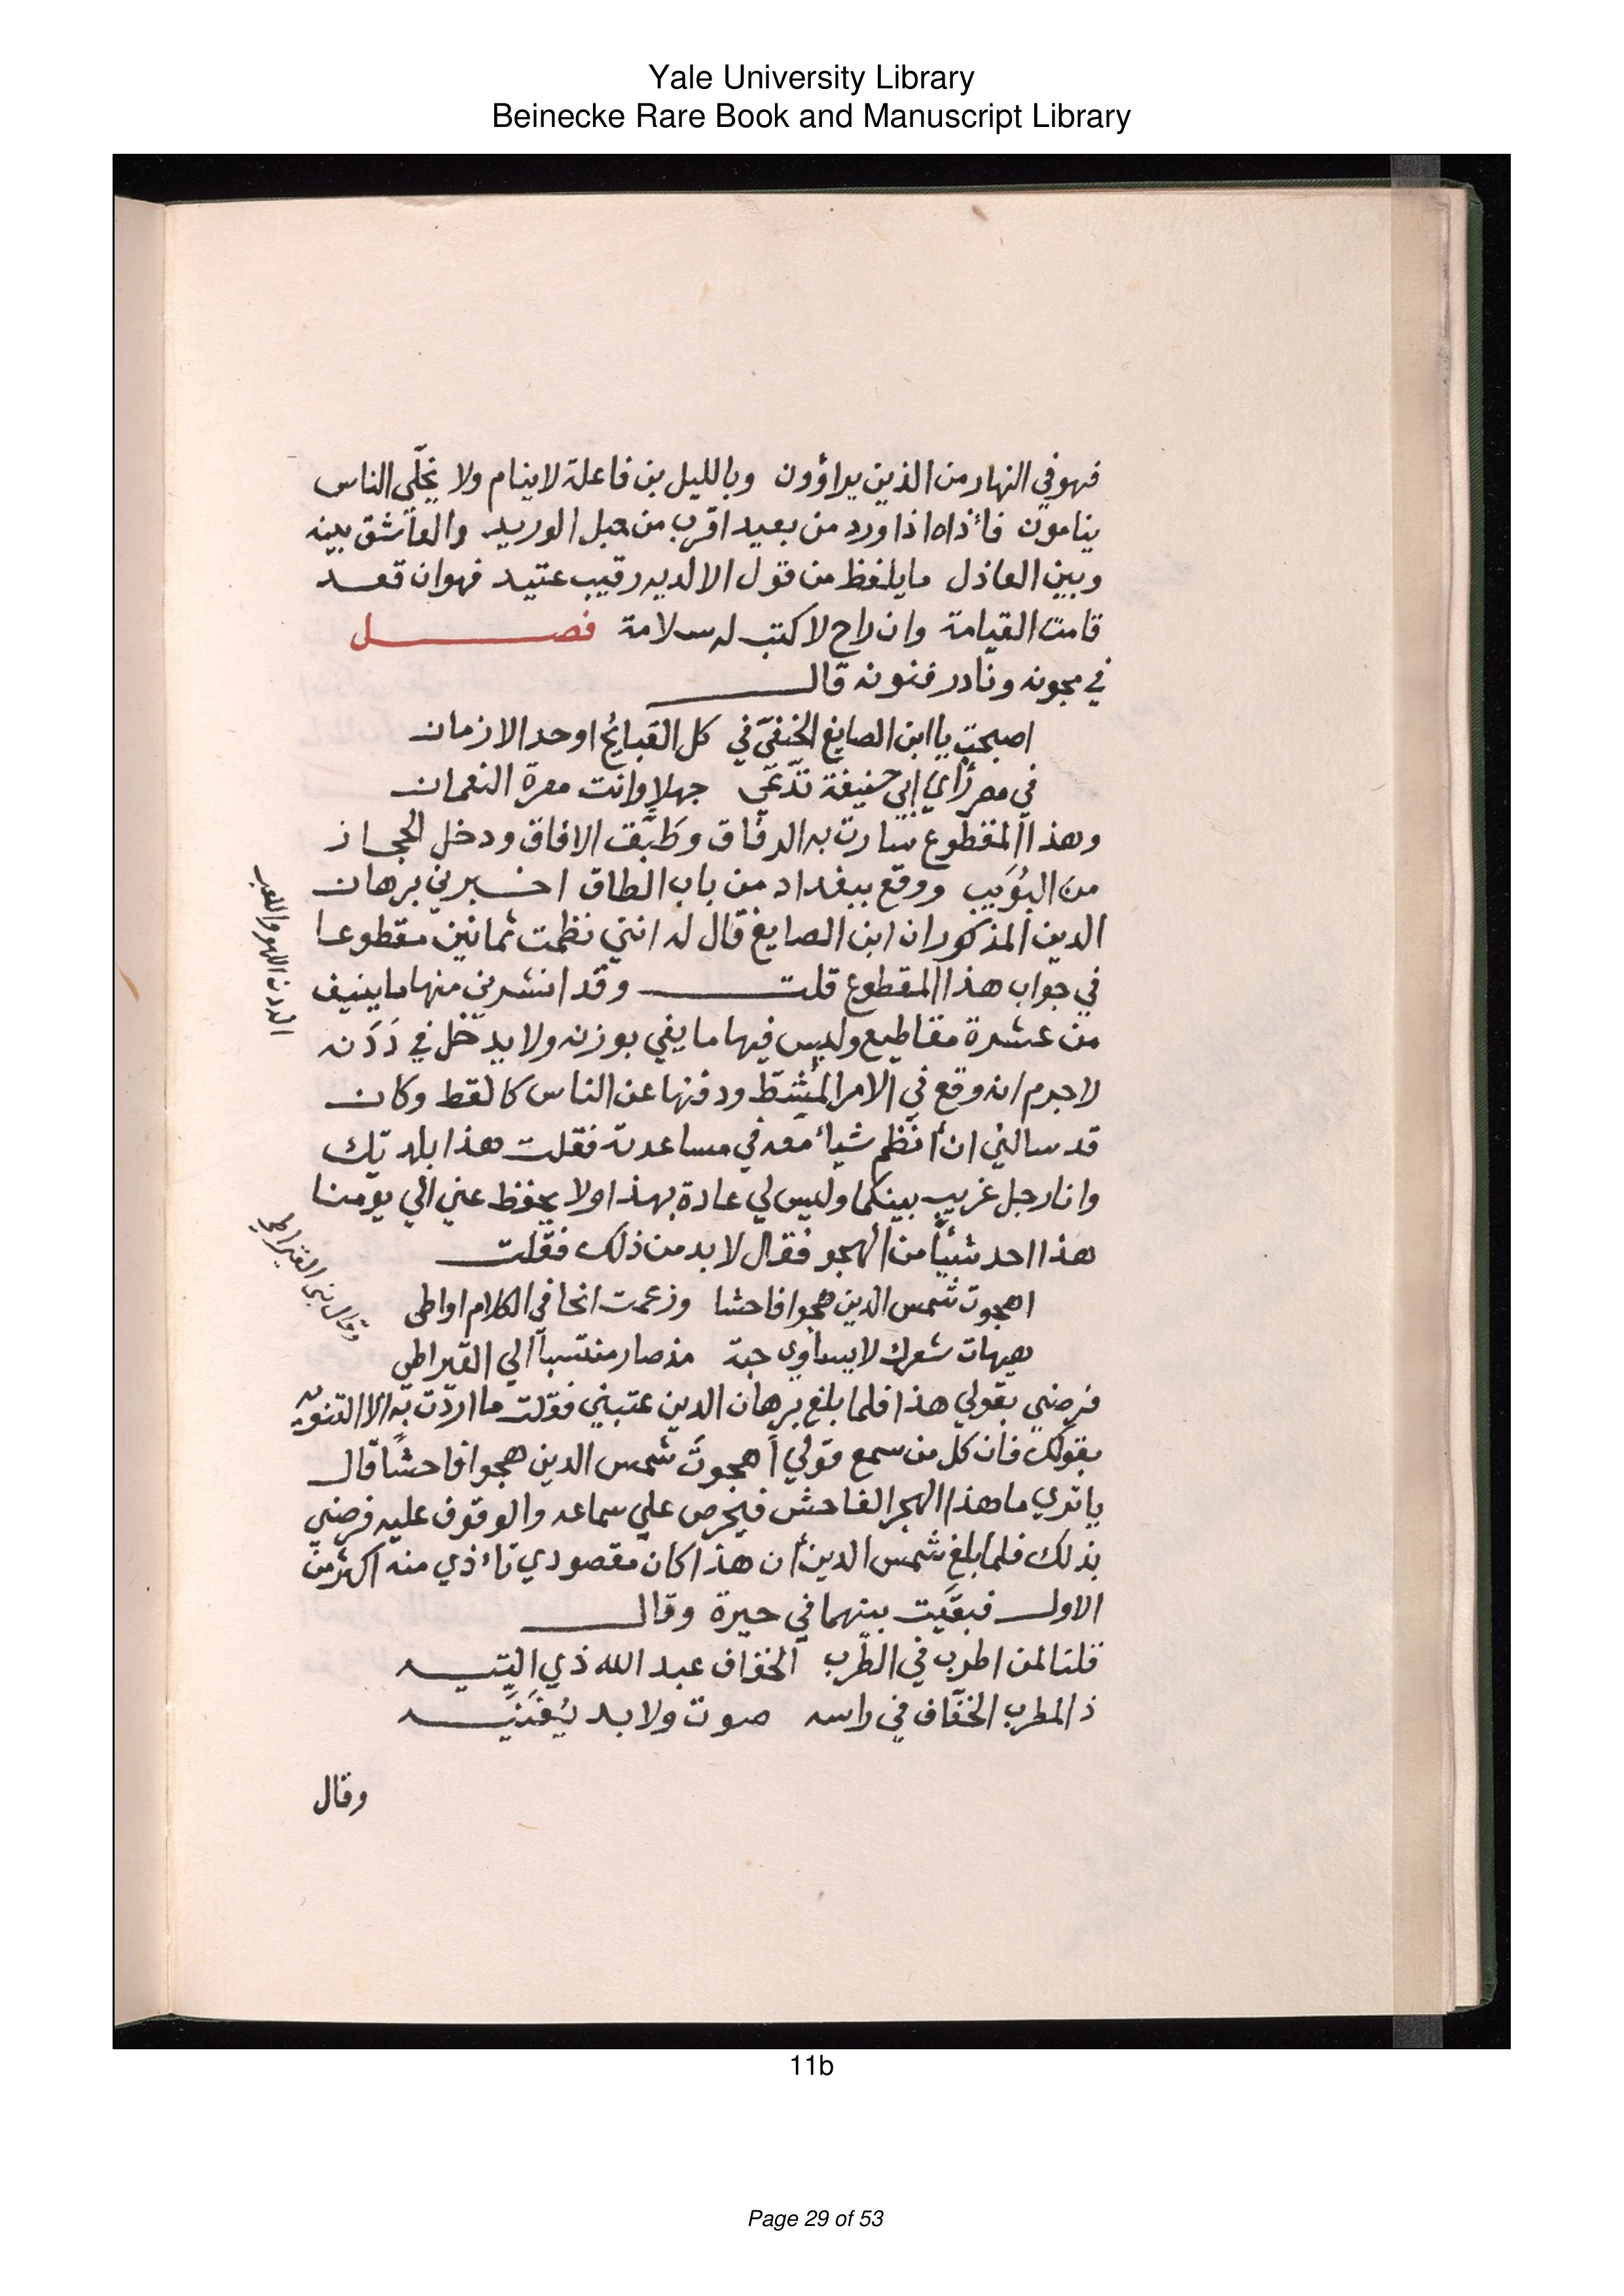 Yale University Library
Beinecke Rare Book and Manuscript Library
فهو في النهار من الذين يراؤون وبالليل بن فاعلة لا ينام ولا يخلّي الناس
ينامون فاٴذاه اذا ورد من بعيد اقرب من حبل الوريد والعاشق بينه
وبين العاذل ما يلفظ من قول الا لديه رقيب عتيد فهو ان قعد
قامت القيامة وان راح لا كتب له سلامة فصل
في مجونه ونادر فنونه قال
اصبحت يا ابن الصايغ الحنفيّ في كل القبائح اوحد الازمان
في مصر رأي ابي حنيفة تدّعي جهلا وانت معرة النعمان
وهذا المقطوع سارت به الرفاق وطبّقت الافاق ودخل الحجاز
من البُوَيب ووقع ببغداد من باب الطاق اخبرني برهان
الدين المذكور ان ابن الصايغ قال له انني نظمت ثمانين مقطوعا
في جواب هذا المقطوع قلت وقد انشدني منها ما ينيف
من عشرة مقاطيع وليس فيها ما يفي بوزنه ولا يدخل في دَدَنه
لا جرم انه وقع في الامر المشطّ ودفنها عن الناس كالقط وكان
قد سالني ان أنظم شياٴ معه في مساعدته فقلت هذا بلديّك
وانا رجل غريب بينكما وليس لي عادة بهذا ولا يحفظ عني الي يومنا
هذا احد شيئًا من الهجو فقال لا بد من ذلك فقلت
اهجوت شمس الدين هجوا فاحشا وزعمت انحا في الكلام اواطى
هيهات شعرك لا يساوي حبة مذ صار منتسباً الي القيراطي
فرضي بقولي هذا فلما بلغ برهان الدين عتبني فقلت ما اردّت به الا التنويه
بقولك فان كل من سمع قولي أهجوتَ شمس الدين هجوا فاحشًا قال
يا تري ما هذا الهجر الفاحش فيحرص علي سماعه والوقوف عليه فرضي
بذلك فلما بلغ شمس الدين أن هذا كان مقصودي تاٴذي منه اكثر من
الاول فبقيت بينهما في حيرة وقال
قلنا لمن اطرب في الطرب الخفاف عبد الله ذي التيه
ذا المطرب الخفّاف في راسه صوت ولا بد يُغَنّيه
وقال
الددن اللهو واللعب
11b
Page 29 of 53